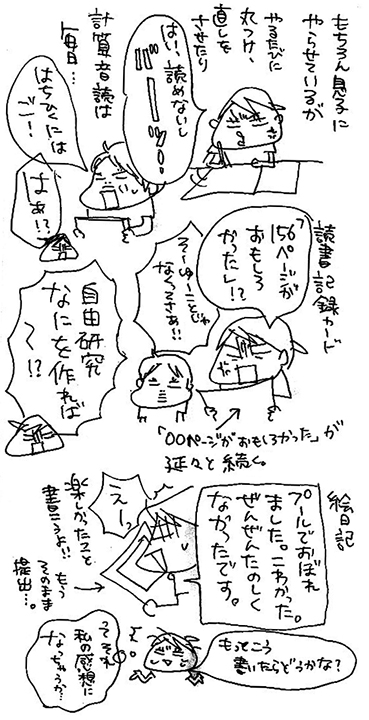 もちろん息子に
やらせているが
やるたびに
丸つけ、
直しを
させたり
はい、読めないし
バーツッ!
計算音読は
毎日…
はちひくには
ご!
はぁ!?
読書記録カード
「156ページが
おもしろ
かったレ!?
そーゆーことじゃ
なくってさぁ!!
自由研究
なにを作れば
〜!?
「〇〇ページがおもしろかった」が
延々と続く。
絵日記
プールでおぼれ
ました。こわかった。
ぜんぜんたのしく
なかったです。
えーっ
楽しかったこと
書こうよ!!
もう
そのまま
提出…。
もっとこう
書いたらどうかな?
ってそれ
私の感想に
なっちゃうか…